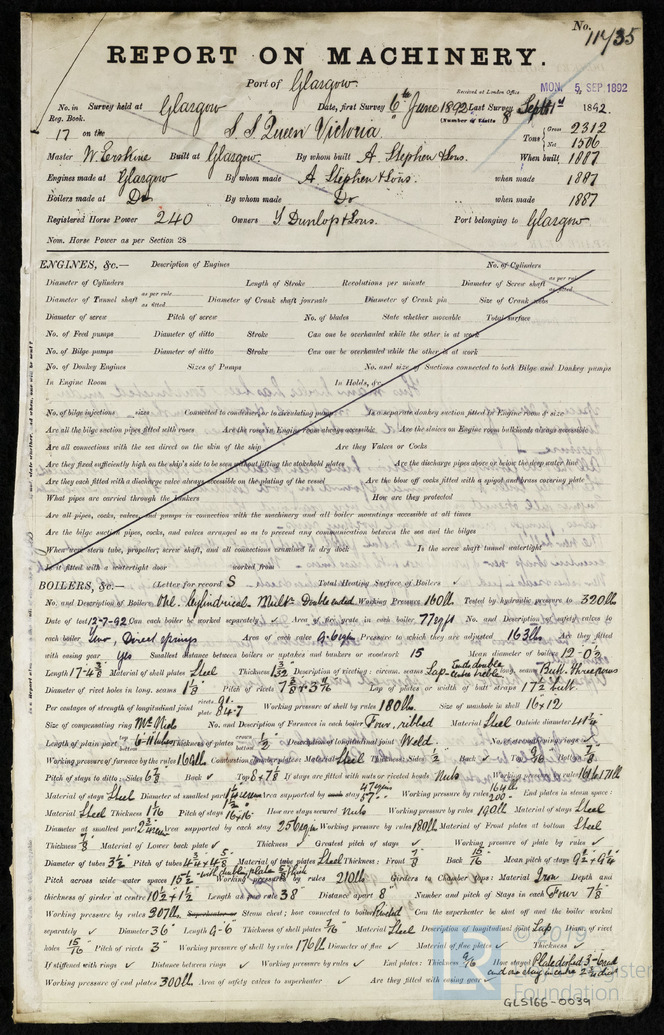 No. 11735
REPORT ON MACHINERY.
Port of Glasgow
Received at London Office MON. 5 SEP 1892
No. in Survey held at Glasgow Date, first Survey 6th June 1892 Last Survey Sept 1st 1892.
Reg. Book. (Number of Visits 8
17 on the S.S. Queen Victoria Tons Gross 2312
Net 1506
Master W. Erskine Built at Glasgow By whom built A. Stephen & Sons. When built 1887
Engines made at Glasgow By whom made A. Stephen & Sons. when made 1887
Boilers made at Do By whom made Do when made 1887
Registered Horse Power 240 Owners Dunlop & Sons. Port belonging to Glasgow
Nom. Horse Power as per Section 28
ENGINES, &c.— Description of Engines No. of Cylinders
Diameter of Cylinders Length of Stroke Revolutions per minute Diameter of Screw shaft as per rule as fitted
Diameter of Tunnel shaft as per rule as fitted Diameter of Crank shaft journals Diameter of Crank pin Size of Crank webs
Diameter of screw Pitch of screw No. of blades State whether moveable Total surface
No. of Feed pumps Diameter of ditto Stroke Can one be overhauled while the other is at work
No. of Bilge pumps Diameter of ditto Stroke Can one be overhauled while the other is at work
No. of Donkey Engines Sizes of Pumps No. and size of Suctions connected to both Bilge and Donkey pumps
In Engine Room In Holds, &c.
No. of bilge injections sizes Connected to condenser, or to circulating pump Is a separate donkey suction fitted in Engine room & size
Are all the bilge suction pipes fitted with roses Are the roses in Engine room always accessible Are the sluices on Engine room bulkheads always accessible
Are all connections with the sea direct on the skin of the ship Are they Valves or Cocks
Are they fixed sufficiently high on the ship's side to be seen without lifting the stokehold plates Are the discharge pipes above or below the deep water line
Are they each fitted with a discharge valve always accessible on the plating of the vessel Are the blow off cocks fitted with a spigot and brass covering plate
What pipes are carried through the bunkers How are they protected
Are all pipes, cocks, valves, and pumps in connection with the machinery and all boiler mountings accessible at all times
Are the bilge suction pipes, cocks, and valves arranged so as to prevent any communication between the sea and the bilges
When were stern tube, propeller, screw shaft, and all connections examined in dry dock Is the screw shaft tunnel watertight
Is it fitted with a watertight door worked from
BOILERS, &c.— (Letter for record S Total Heating Surface of Boilers ✓
No. and Description of Boilers One. Cylindrical. Mult. Double ended Working Pressure 160 lb Tested by hydraulic pressure to 320 lb
Date of test 12-7-92 Can each boiler be worked separately ✓ Area of fire grate in each boiler 77 sq ft No. and Description of safety valves to
each boiler Two, Direct springs Area of each valve Pressure to which they are adjusted 163 lb Are they fitted
with easing gear Yes Smallest distance between boilers or uptakes and bunkers or woodwork 15 Mean diameter of boilers 12-0½
Length 17-4⅜ Material of shell plates Steel Thickness 1 3/32 Description of riveting: circum. seams Lap Ends double Centre treble long. seams Butt. Three rows
Diameter of rivet holes in long. seams 1⅛ Pitch of rivets Lap of plates or width of butt straps 17½ butt
Per centages of strength of longitudinal joint rivets 91. plate 84.7 Working pressure of shell by rules 180 lb. Size of manhole in shell 16x12
Size of compensating ring McNeil No. and Description of Furnaces in each boiler Four, ribbed Material Steel Outside diameter
Length of plain part top bottom Thickness of plates crown bottom ½ Description of longitudinal joint Weld. No. of strengthening rings ✓
Working pressure of furnace by the rules 160 lb. Combustion chamber plates: Material Steel Thickness: Sides ½ Back ✓ Top 9/16 Bottom ⅞
Pitch of stays to ditto: Sides Back ✓ Top 8x7⅞ If stays are fitted with nuts or riveted heads Nuts Working pressure by rules 161 lb 171 lb
Material of stays Steel Diameter at smallest part Area supported by each stay Working pressure by rules End plates in steam space:
Material Steel Thickness Pitch of stays 16x16 How are stays secured Nuts Working pressure by rules 190 lb Material of stays Steel
Diameter at smallest part Area supported by each stay 256 sq in Working pressure by rules 180 lb Material of Front plates at bottom Steel
Thickness ⅞ Material of Lower back plate ✓ Thickness ✓ Greatest pitch of stays ✓ Working pressure of plate by rules ✓
Diameter of tubes 3½ Pitch of tubes Material of tube plates Steel Thickness: Front ⅞ Back 15/16 Mean pitch of stays 9½ x 9¼
Pitch across wide water spaces 15½ Working pressures by rules 210 lb Girders to Chamber tops: Material Iron Depth and
thickness of girder at centre 10½ x 1½ Length as per rule 38 Distance apart 8 Number and pitch of Stays in each Four 7⅛
Working pressure by rules 307 lb. Superheater or Steam chest; how connected to boiler Riveted Can the superheater be shut off and the boiler worked
separately ✓ Diameter 36 Length 9-6 Thickness of shell plates 7/16 Material Steel Description of longitudinal joint Lap Diam. of rivet
holes 15/16 Pitch of rivets 3 Working pressure of shell by rules 176 lb Diameter of flue ✓ Material of flue plates ✓ Thickness ✓
If stiffened with rings ✓ Distance between rings ✓ Working pressure by rules ✓ End plates: Thickness 9/16 How stayed Plate dished
Working pressure of end plates 300 lb. Area of safety valves to superheater ✓ Are they fitted with easing gear ✓
© 2019
LR Lloyd's Register Foundation
GLS166-0039